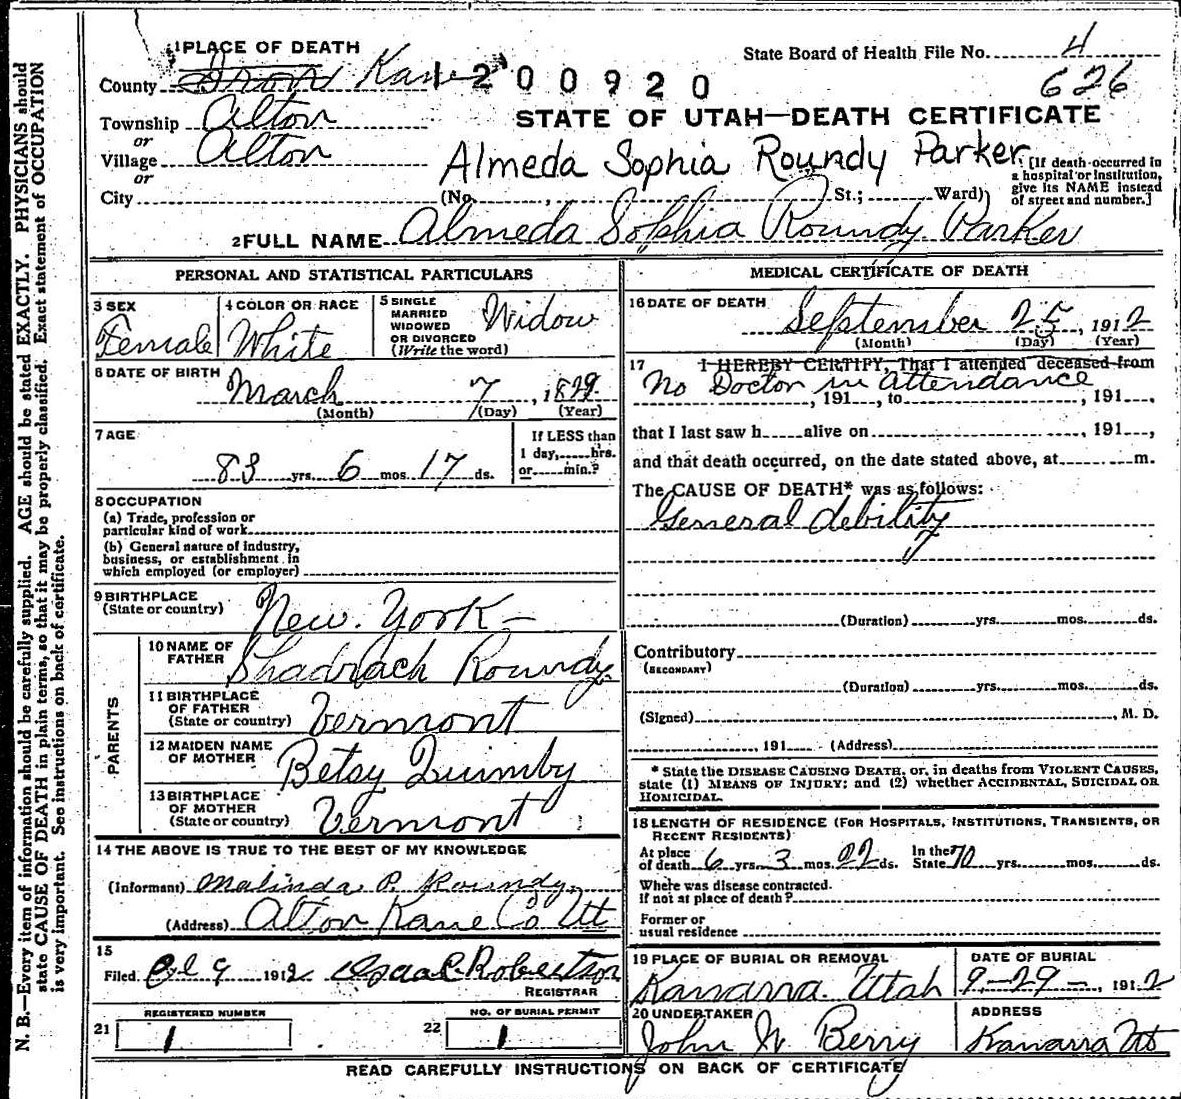 N. B.—Every item of information should be carefully supplied. AGE should be stated EXACTLY. PHYSICIANS should
state CAUSE OF DEATH in plain terms, so that it may be properly classified. Exact statement of OCCUPATION
is very important. See instructions on back of certificate.
1 PLACE OF DEATH
State Board of Health File No. 4
County Iron Kane
1200920
626
Township Alton
STATE OF UTAH—DEATH CERTIFICATE
or
Village Alton
Almeda Sophia Roundy Parker
[If death occurred in
a hospital or institution,
give its NAME instead
of street and number.]
or
City (No. , St.; Ward)
2 FULL NAME Almeda Sophia Roundy Parker
PERSONAL AND STATISTICAL PARTICULARS
3 SEX
Female
4 COLOR OR RACE
White
5 SINGLE
MARRIED
WIDOWED
OR DIVORCED
(Write the word)
Widow
6 DATE OF BIRTH
March 7, 1829
(Month) (Day) (Year)
7 AGE
83 yrs. 6 mos. 17 ds.
If LESS than
1 day, hrs.
or min.?
8 OCCUPATION
(a) Trade, profession or
particular kind of work
(b) General nature of industry,
business, or establishment in
which employed (or employer)
9 BIRTHPLACE
(State or country)
New York
PARENTS
10 NAME OF
FATHER
Shadrach Roundy
11 BIRTHPLACE
OF FATHER
(State or country)
Vermont
12 MAIDEN NAME
OF MOTHER
Betsy Quimby
13 BIRTHPLACE
OF MOTHER
(State or country)
Vermont
14 THE ABOVE IS TRUE TO THE BEST OF MY KNOWLEDGE
(Informant) Malinda P. Roundy
(Address) Alton Kane Co Ut
15
Filed 9 1912 Isaac Robertson
REGISTRAR
21 REGISTERED NUMBER
1
22 NO. OF BURIAL PERMIT
1
MEDICAL CERTIFICATE OF DEATH
16 DATE OF DEATH
September 25, 1912
(Month) (Day) (Year)
17 I HEREBY CERTIFY, That I attended deceased from
No Doctor in Attendance
, 191 , to , 191 ,
that I last saw h alive on , 191 ,
and that death occurred, on the date stated above, at m.
The CAUSE OF DEATH* was as follows:
General debility
(Duration) yrs. mos. ds.
Contributory
(SECONDARY)
(Duration) yrs. mos. ds.
(Signed) , M. D.
, 191 (Address)
* State the DISEASE CAUSING DEATH, or, in deaths from VIOLENT CAUSES,
state (1) MEANS OF INJURY; and (2) whether ACCIDENTAL, SUICIDAL OR
HOMICIDAL.
18 LENGTH OF RESIDENCE (FOR HOSPITALS, INSTITUTIONS, TRANSIENTS, OR
RECENT RESIDENTS)
At place
of death 6 yrs. 3 mos. 22 ds.
In the
State 70 yrs. mos. ds.
Where was disease contracted.
if not at place of death?
Former or
usual residence
19 PLACE OF BURIAL OR REMOVAL
Kanarra. Utah
DATE OF BURIAL
9-29-, 1912
20 UNDERTAKER
John W Berry
ADDRESS
Kanarra Ut
READ CAREFULLY INSTRUCTIONS ON BACK OF CERTIFICATE